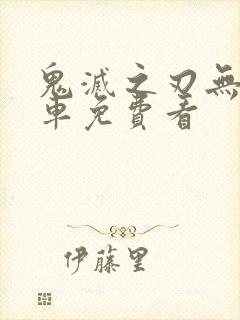 鬼滅之刃無
車免費看
伊藤里